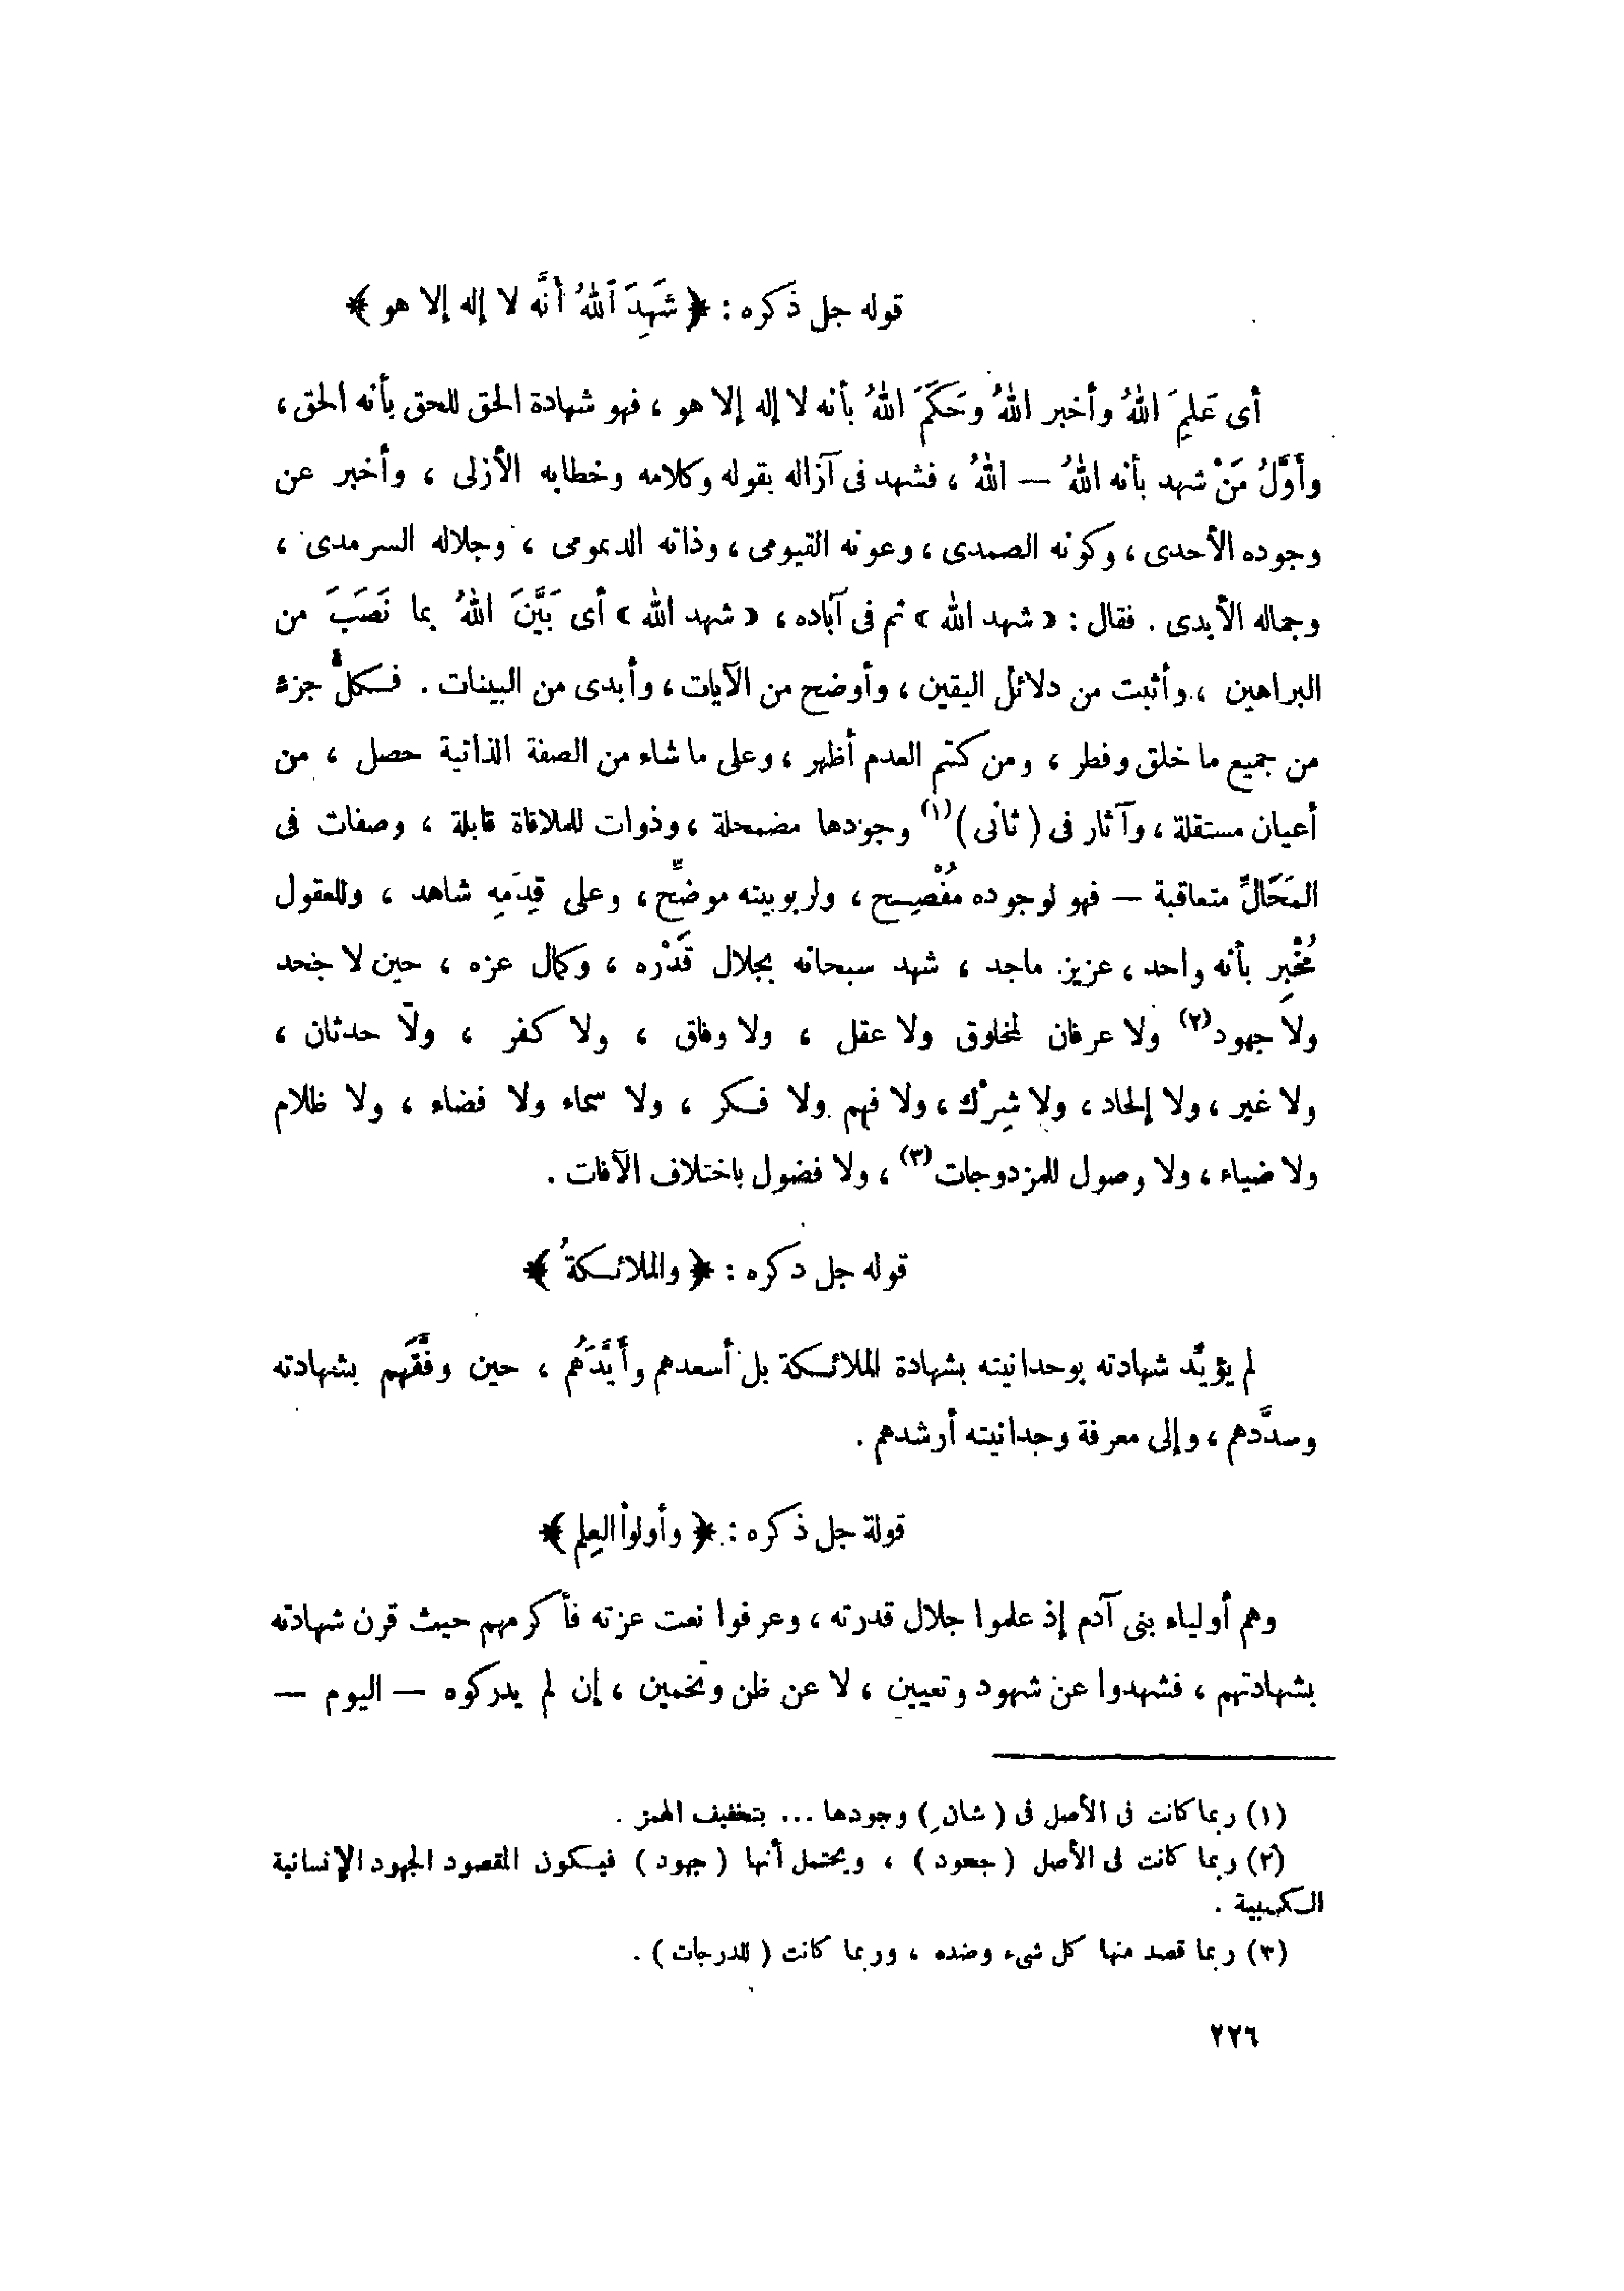 قوله جل ذكره : ﴿ شَهِدَ ٱللهُ أنَّه لا إله إلا هو ﴾
أى عَلِمَ اللهُ وأخبر اللهُ وحَكَمَ اللهُ بأنه لا إله إلا هو ، فهو شهادة الحق للحق بأنه الحق ،
وأَوَّلُ مَنْ شهد بأنه اللهُ — اللهُ ، فشهد فى آزاله بقوله وكلامه وخطابه الأزلى ، وأخبر عن
وجوده الأحدى ، وكونه الصمدى ، وعونه القيومى ، وذاته الديمومى ، وجلاله السرمدى ،
وجماله الأبدى . فقال : « شهد الله » ثم فى آباده ، « شهد الله » أى بَيَّنَ اللهُ بما نَصَبَ من
البراهين ، وأثبت من دلائل اليقين ، وأوضح من الآيات ، وأبدى من البينات . فكلُّ جزء
من جميع ما خلق وفطر ، ومن كتم العدم أظهر ، وعلى ما شاء من الصفة الذاتية حصل ، من
أعيان مستقلة ، وآثار فى ( ثانى )(١) وجودها مضمحلة ، وذوات للملاقاة قابلة ، وصفات فى
المَحَالِّ متعاقبة — فهو لوجوده مُفْصِح ، ولربوبيته موضِّح ، وعلى قِدَمِه شاهد ، وللعقول
مُخْبِر بأنه واحد ، عزيز ماجد ، شهد سبحانه بجلال قَدْره ، وكمال عزه ، حين لا جحد
ولا جهود(٢) ولا عرفان لمخلوق ولا عقل ، ولا وفاق ، ولا كفر ، ولا حدثان ،
ولا غير ، ولا إلحاد ، ولا شِرْك ، ولا فهم ولا فكر ، ولا سماء ولا فضاء ، ولا ظلام
ولا ضياء ، ولا وصول للمزدوجات(٣) ، ولا فضول باختلاف الآفات .
قوله جل دكره : ﴿ والملائكةُ ﴾
لم يؤيِّد شهادته بوحدانيته بشهادة الملائكة بل أسعدهم وأَيَّدَهُم ، حين وفَّقَهم بشهادته
وسدَّدهم ، وإلى معرفة وحدانيته أرشدهم .
قولة جل ذكره : ﴿ وأولواْ العِلم ﴾
وهم أولياء بنى آدم إذ علموا جلال قدرته ، وعرفوا نعت عزته فأكرمهم حيث قرن شهادته
بشهادتهم ، فشهدوا عن شهود وتعيين ، لا عن ظن وتخمين ، إن لم يدركوه — اليوم —
(١) ربما كانت فى الأصل فى ( شان ) وجودها ... بتخفيف الهمز .
(٢) ربما كانت فى الأصل ( جحود ) ، ويحتمل أنها ( جهود ) فيكون المقصود الجهود الإنسانية
الكسبية .
(٣) ربما قصد منها كل شىء وضده ، وربما كانت ( للدرجات ) .
٢٢٦